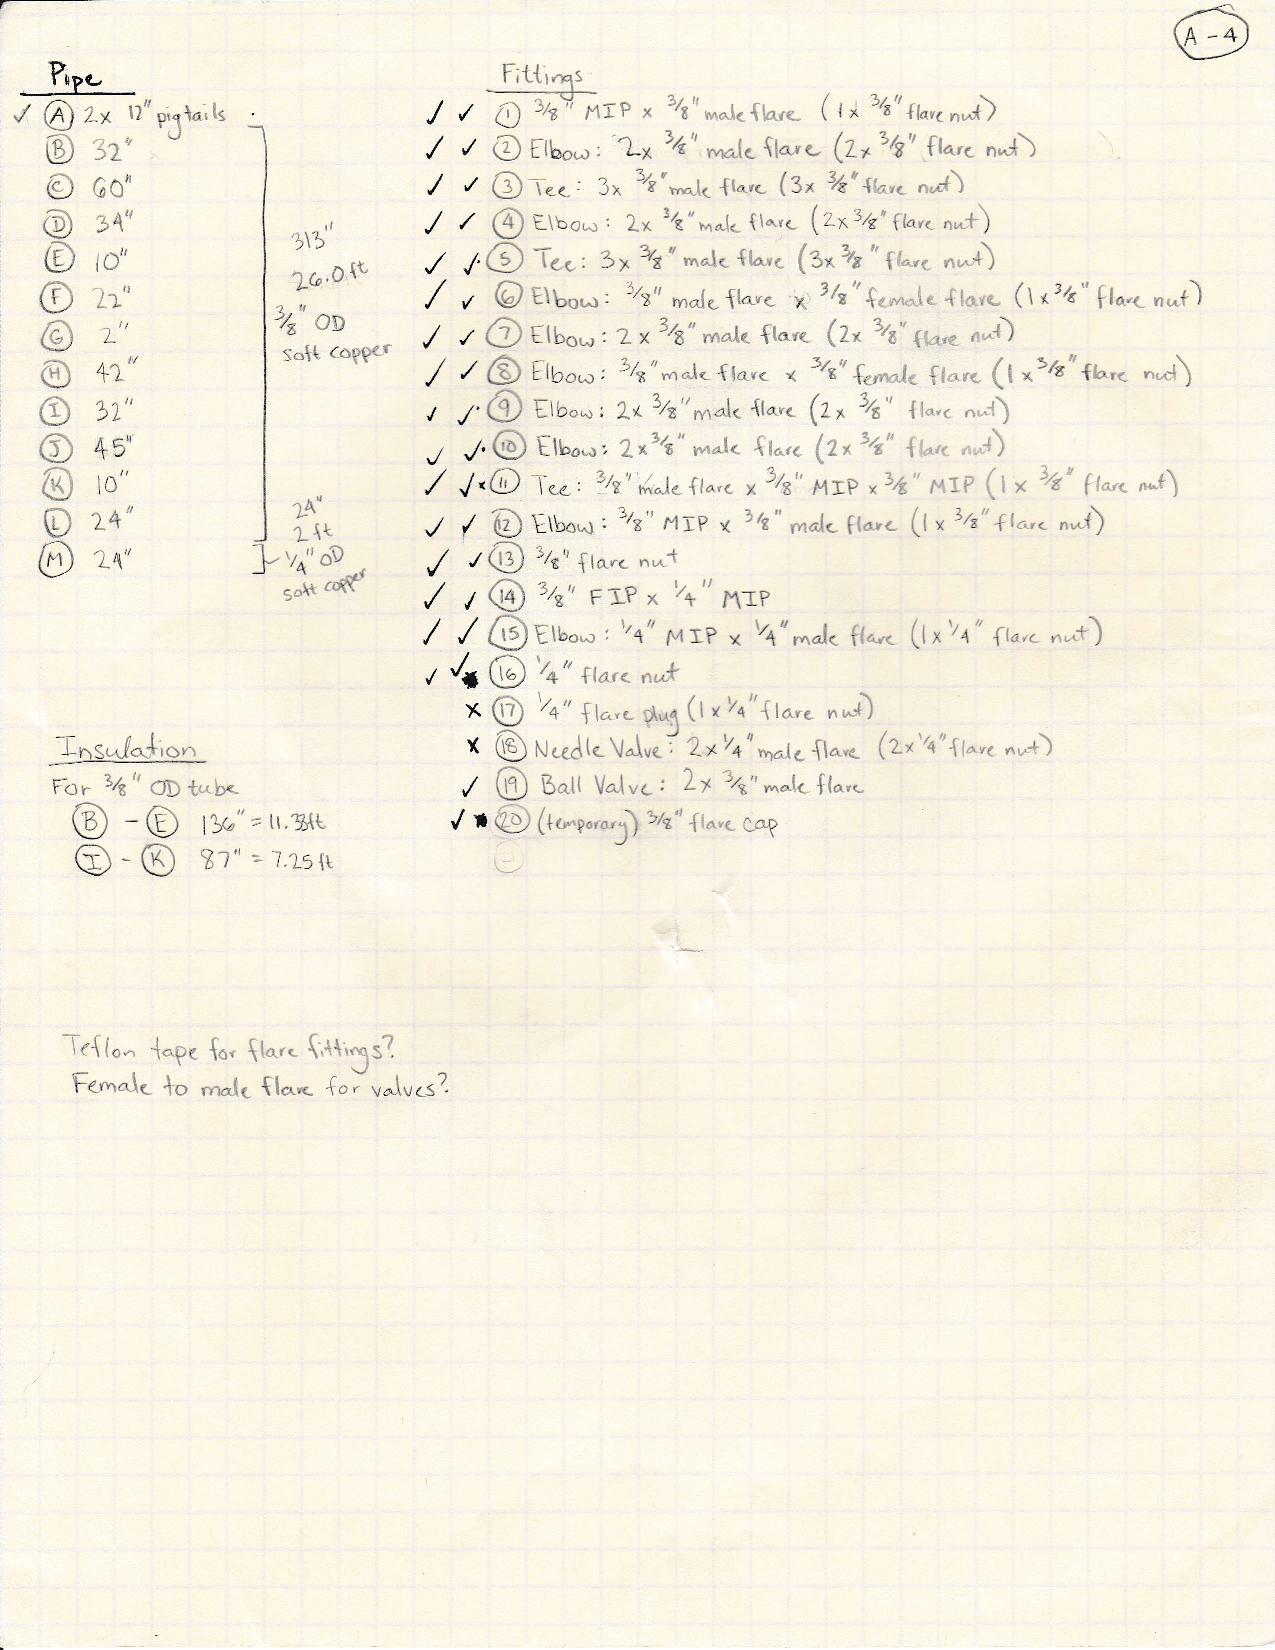 A - 4
Pipe
✓ A 2x 12" pigtails
B 32"
C 60"
D 34"
E 10"
F 22"
G 2"
H 42"
I 32"
J 45"
K 10"
L 24"
M 24"
313"
26.0 ft
3/8" OD
soft copper
24"
2 ft
1/4" OD
soft copper
Insulation
For 3/8" OD tube
B - E 136" = 11.33ft
I - K 87" = 7.25 ft
Fittings
✓ ✓ 1 3/8" MIP x 3/8" male flare (1x 3/8" flare nut)
✓ ✓ 2 Elbow: 2x 3/8" male flare (2x 3/8" flare nut)
✓ ✓ 3 Tee: 3x 3/8" male flare (3x 3/8" flare nut)
✓ ✓ 4 Elbow: 2x 3/8" male flare (2x 3/8" flare nut)
✓ ✓ 5 Tee: 3x 3/8" male flare (3x 3/8" flare nut)
✓ ✓ 6 Elbow: 3/8" male flare x 3/8" female flare (1x 3/8" flare nut)
✓ ✓ 7 Elbow: 2x 3/8" male flare (2x 3/8" flare nut)
✓ ✓ 8 Elbow: 3/8" male flare x 3/8" female flare (1x 3/8" flare nut)
✓ ✓ 9 Elbow: 2x 3/8" male flare (2x 3/8" flare nut)
✓ ✓ 10 Elbow: 2x 3/8" male flare (2x 3/8" flare nut)
✓ ✓ x 11 Tee: 3/8" male flare x 3/8" MIP x 3/8" MIP (1x 3/8" flare nut)
✓ ✓ 12 Elbow: 3/8" MIP x 3/8" male flare (1x 3/8" flare nut)
✓ ✓ 13 3/8" flare nut
✓ ✓ 14 3/8" FIP x 1/4" MIP
✓ ✓ 15 Elbow: 1/4" MIP x 1/4" male flare (1x 1/4" flare nut)
✓ ✓ 16 1/4" flare nut
x 17 1/4" flare plug (1x 1/4" flare nut)
x 18 Needle Valve: 2x 1/4" male flare (2x 1/4" flare nut)
✓ 19 Ball Valve: 2x 3/8" male flare
✓ 20 (temporary) 3/8" flare cap
Teflon tape for flare fittings?
Female to male flare for valves?